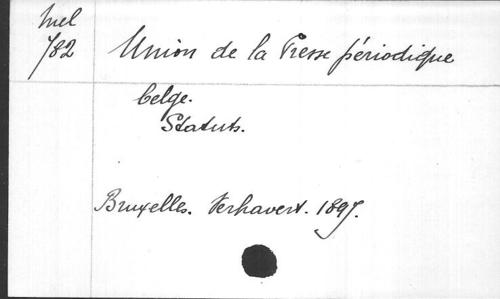 Mel
782
Union de la Presse périodique
belge.
Statuts.
Bruxelles. Verhavert. 1897.